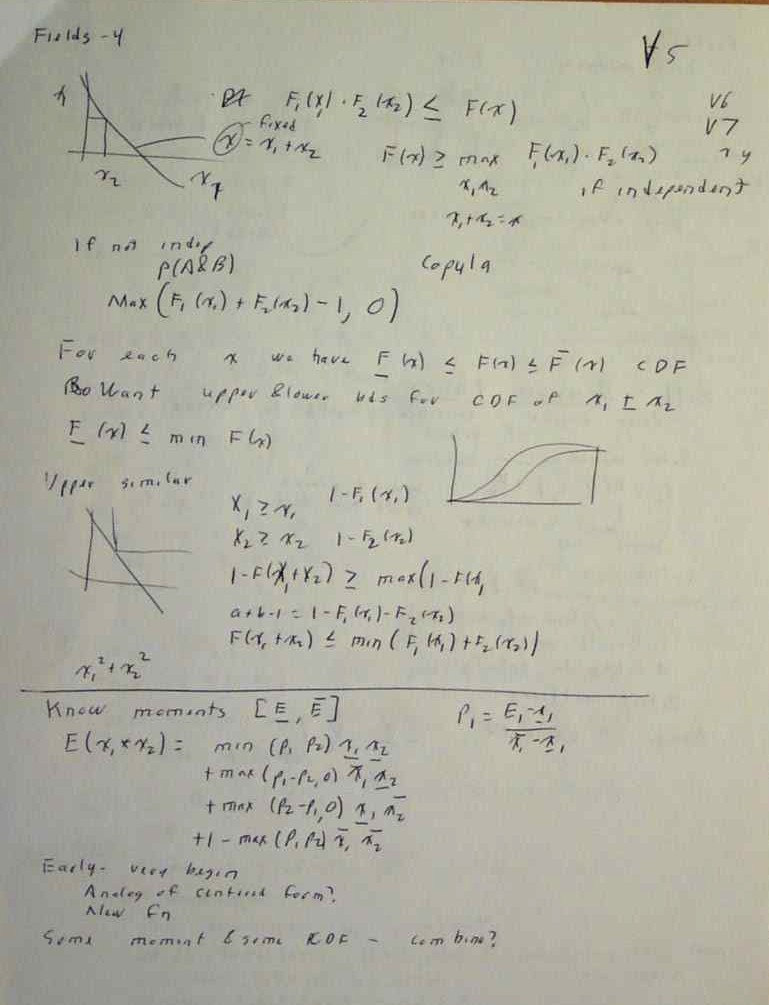 Fields-4
V5
F₁(x₁)·F₂(x₂) ≤ F(x)
V6
V7
fixed
x = x₁+x₂
F(x) ≥ max F₁(x₁)·F₂(x₂)
x₁x₂ if independent
x₁+x₂=x
x₂
If not indep
P(A&B) Copula
Max (F₁(x₁) + F₂(x₂) -1, 0)
For each x we have F̲(x) ≤ F(x) ≤ F̄(x) CDF
Want upper & lower bds for CDF of x₁ ± x₂
F̲(x) ≤ min F(x)
Upper similar
X₁ ≥ x₁ 1-F₁(x₁)
X₂ ≥ x₂ 1-F₂(x₂)
1-F(x₁+x₂) ≥ max(1-F(x₁
a+b-1 = 1-F₁(x₁)-F₂(x₂)
F(x₁+x₂) ≤ min(F₁(x₁)+F₂(x₂))
x₁²+x₂²
Know moments [E̲, Ē] P₁ = E₁-x̲₁ / x̄₁-x̲₁
E(x₁*x₂) = min (P₁ P₂) x̲₁ x̲₂
+ max (P₁-P₂,0) x̄₁ x̲₂
+ max (P₂-P₁,0) x̲₁ x̄₂
+1 - max (P₁ P₂) x̄₁ x̄₂
Early- very begin
Analog of centered form?
New fn
Some moment & some CDF - combine?